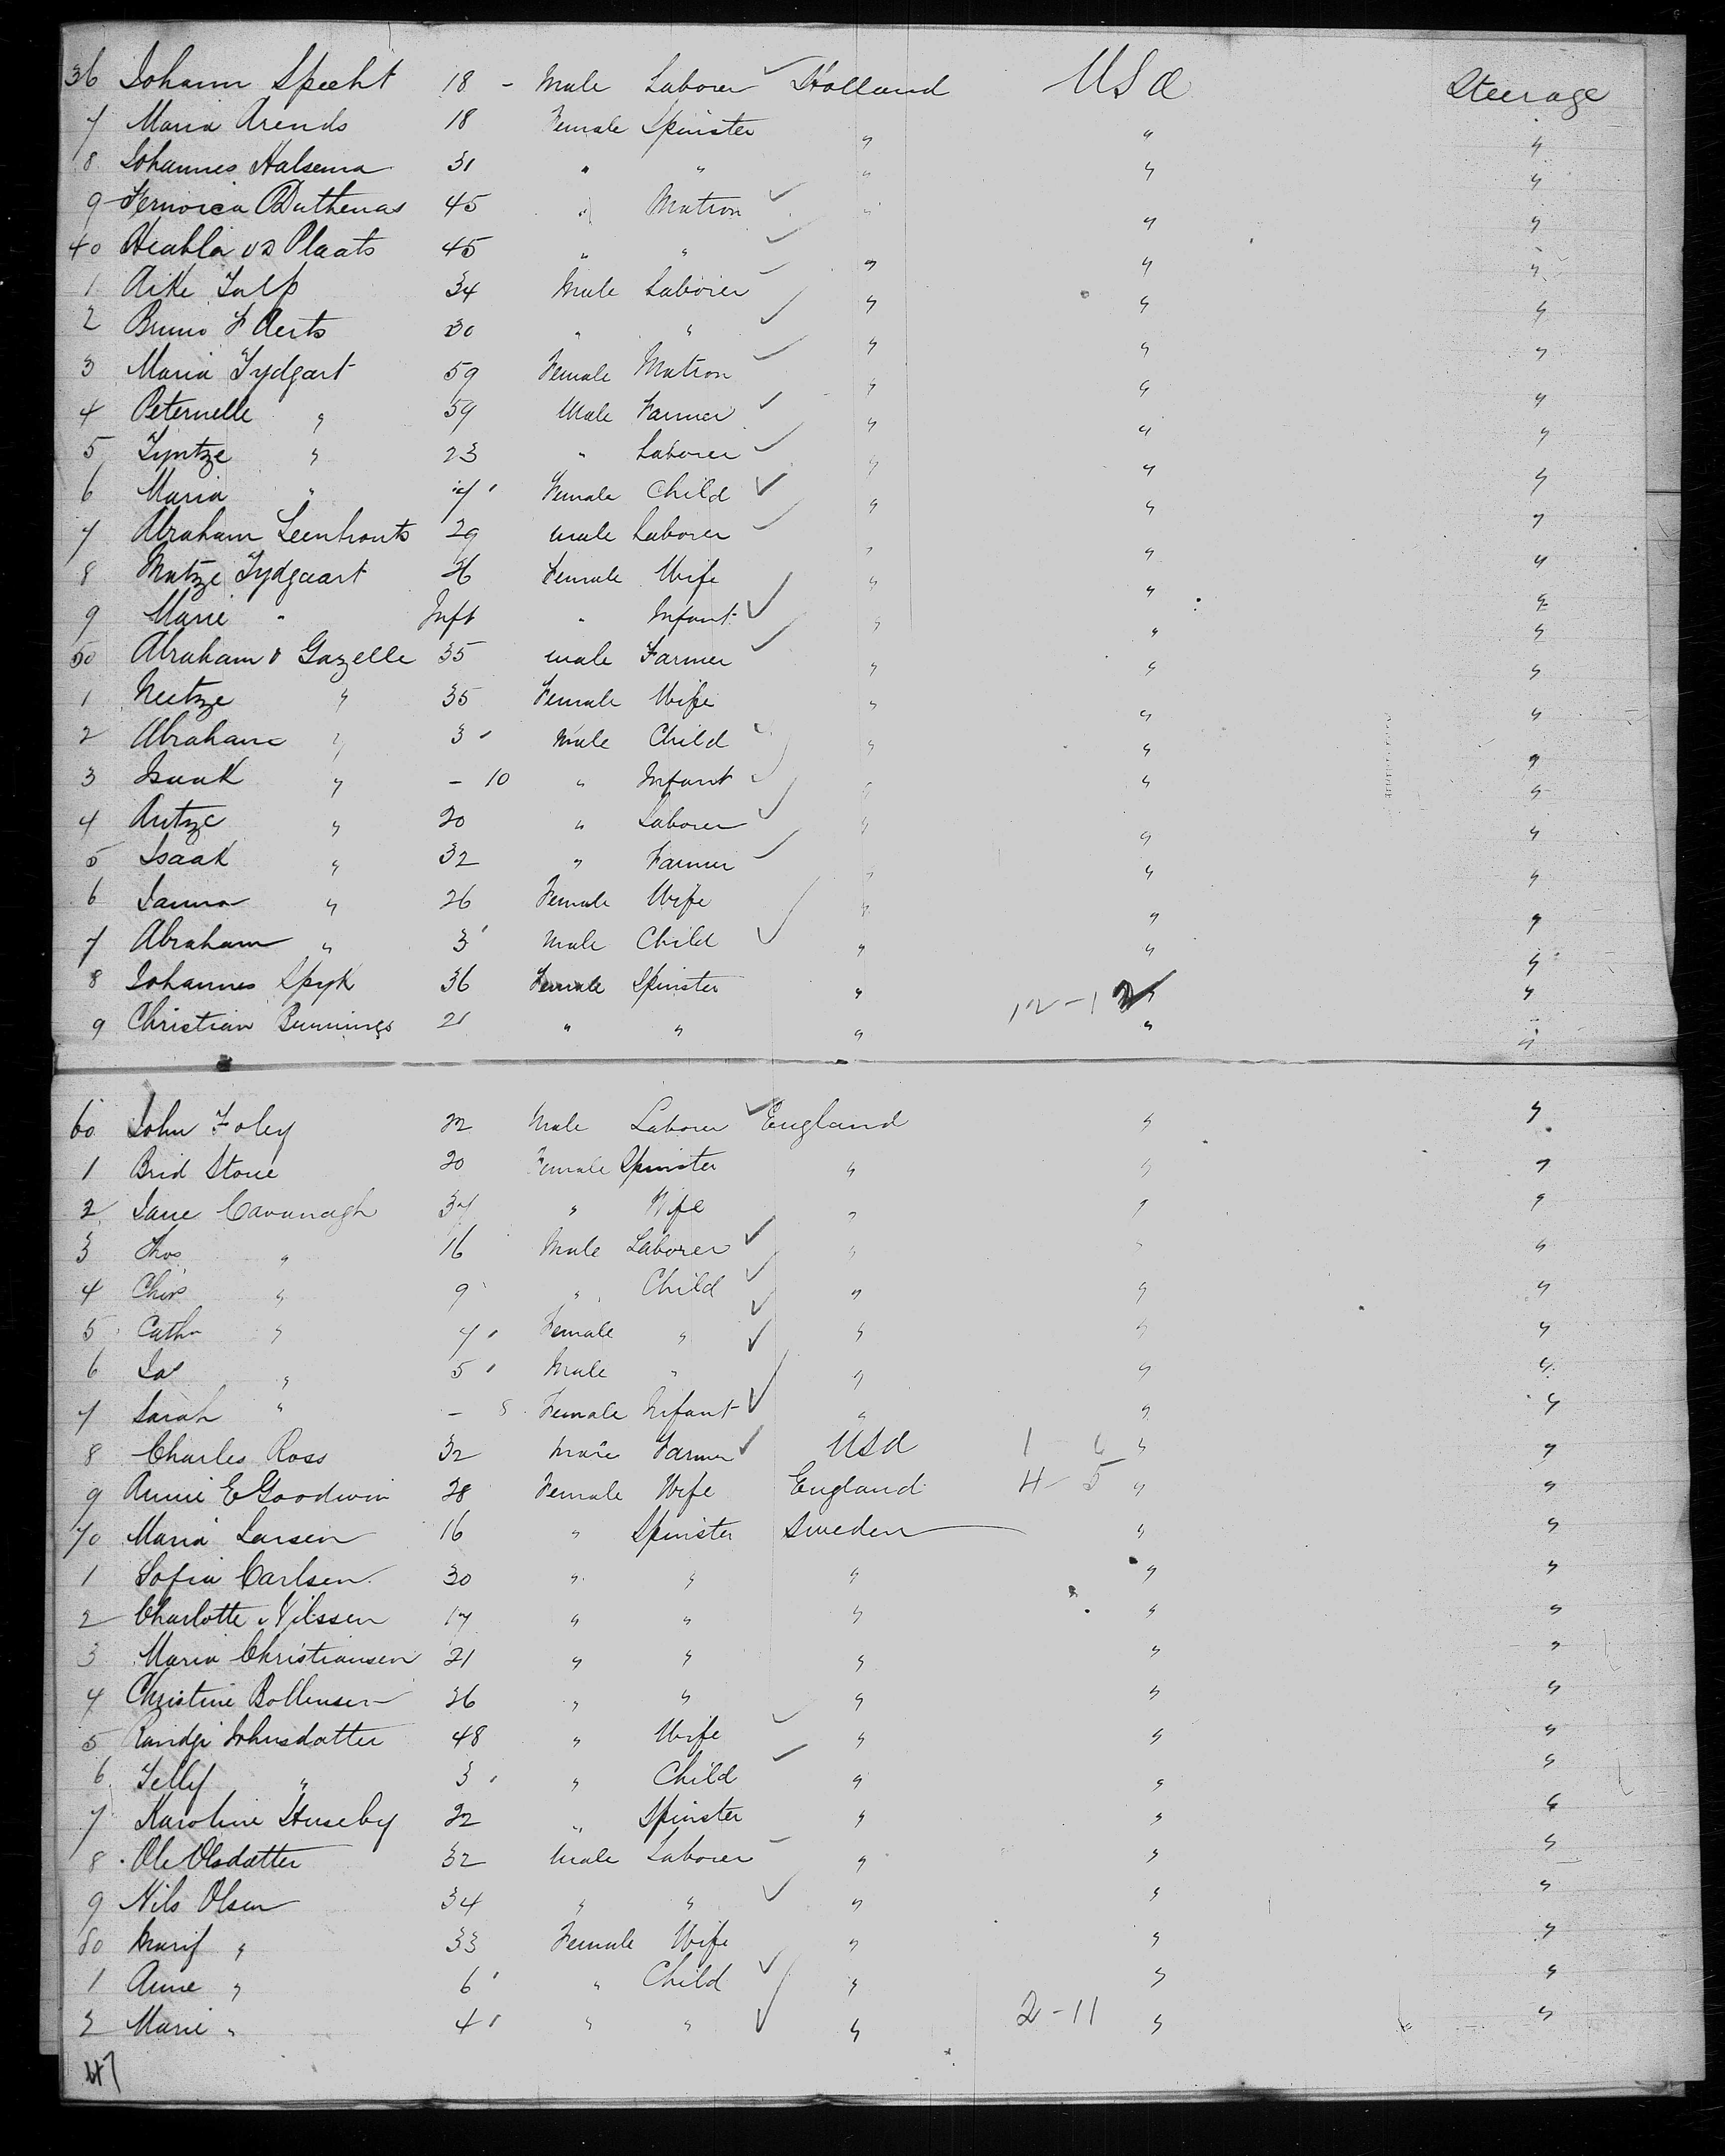 36 Johann Specht 18 - Male Laborer Holland USA Steerage
7 Maria Arends 18 Female Spinster " " "
8 Johannes Halsema 31 " " " " "
9 45 " Matron " " "
40 Plaats 45 " " " " "
1 Aike 34 Male Laborer " " "
2 Bruno F Aerts 30 " " " " "
3 Maria Tydgart 59 Female Matron " " "
4 Peternelle " 59 Male Farmer " " "
5 Tyntze " 23 " Laborer " " "
6 Maria " Female Child " " "
7 Abraham Leenhouts 29 Male Laborer " " "
8 Matze Tydgaart 26 Female Wife " " "
9 Marie " Inft " Infant " " "
50 Abraham v Gazelle 35 Male Farmer " " "
1 Neetze " 35 Female Wife " " "
2 Abraham " 3 Male Child " " "
3 Isaak " - 10 " Infant " " "
4 Antze " 20 " Laborer " " "
5 Isaak " 32 " Farmer " " "
6 Janna " 26 Female Wife " " "
7 Abraham " 3 Male Child " " "
8 Johannes Spyk 36 Female Spinster " 12-12 " "
9 Christian Bunnings 21 " " " " "
60 John Foley 22 Male Laborer England " "
1 Brid Stone 20 Female Spinster " " "
2 Jane Cavanagh 37 " Wife " " "
3 Thos " 16 Male Laborer " " "
4 Chas " 9 " Child " " "
5 Cath " 7 Female " " " "
6 Jas " 5 Male " " " "
7 Sarah " - 8 Female Infant " " "
8 Charles Ross 32 Male Farmer USA 1 6 " "
9 Annie E Goodwin 28 Female Wife England 4-5 " "
70 Maria Larsen 16 " Spinster Sweden " "
1 Sofia Carlsen 30 " " " " "
2 Charlotte Nilssen 17 " " " " "
3 Maria Christiansen 21 " " " " "
4 Christine Bollensen 36 " " " " "
5 Randgi Johnsdatter 48 " Wife " " "
6 " 3 " Child " " "
7 Karoline Huseby 22 " Spinster " " "
8 Ole Olsdatter 32 Male Laborer " " "
9 Nils Olsen 34 " " " " "
80 Marif " 33 Female Wife " " "
1 Anne " 6 " Child " " "
2 Marie " 4 " " " 2-11 " "
47